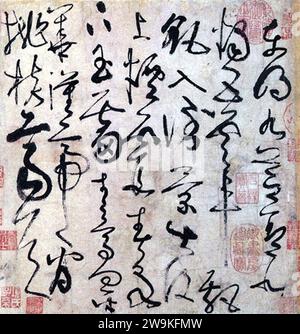 東明九芝蓋北
燭五雲車飄
飖入倒景出没
上煙霞春泉
下玉霤青鳥向金
華漢帝看
桃核齊侯問
alamy
Image ID: 2W9KFMW
www.alamy.com